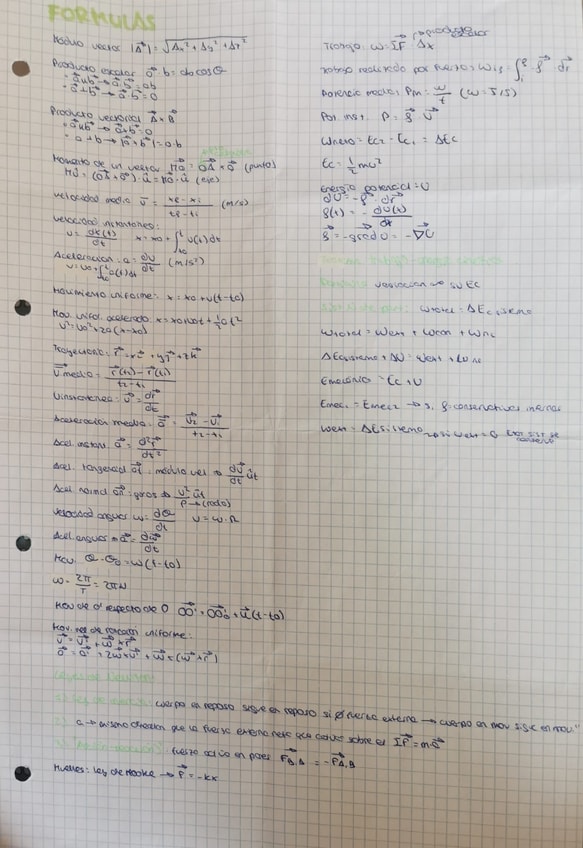 FORMULAS
Módulo vector |A⃗| = √(Ax² + Ay² + Az²)
Producto escalar a⃗ · b = ab cos θ
a⃗ ∥ b⃗ → a⃗ · b⃗ = ab
a⃗ ⊥ b⃗ → a⃗ · b⃗ = 0
Producto vectorial A⃗ × B⃗
a⃗ ∥ b⃗ → a⃗ × b⃗ = 0
a ⊥ b → |a⃗ × b⃗| = a·b
Momento de un vector M⃗o = OA⃗ × a⃗ (punto)
Mu = (OA⃗ × a⃗) · u⃗ = Mo⃗ · u⃗ (eje)
Velocidad media v̄ = (xf - xi)/(tf - ti) (m/s)
Velocidad instantanea:
v = dx(t)/dt x = xo + ∫ v(t) dt
Aceleracion: a = dv/dt (m/s²)
v = vo + ∫ a(t) dt
Movimiento uniforme: x = xo + v(t-to)
Mov. unif. acelerado: x = xo + vot + ½at²
v² = vo² + 2a(x-xo)
Trayectoria: r⃗ = xi⃗ + yj⃗ + zk⃗
v⃗ media = (r⃗(t2) - r⃗(t1))/(t2 - t1)
v instantanea: v⃗ = dr⃗/dt
Aceleración media: a⃗ = (v⃗2 - v⃗1)/(t2 - t1)
Acel. instant. a⃗ = d²r⃗/dt²
Acel. tangencial a⃗t: modulo vel → dv⃗/dt ût
Acel normal a⃗n: → v²/ρ → (radio)
Velocidad angular ω = dθ/dt v = ω·R
Acel. angular → α⃗ = dω⃗/dt
MCU θ - θ0 = ω(t-to)
ω = 2π/T = 2πν
Mov de O' respecto de O OO⃗' = OO⃗'0 + u⃗(t-to)
Mov. rotación uniforme:
v⃗ = v⃗' + ω⃗ × r⃗
a⃗ = a⃗' + 2ω × v⃗' + ω⃗ × (ω⃗ × r⃗)
Leyes de Newton
1) Ley de inercia: cuerpo en reposo sigue en reposo si ∅ fuerza externa → cuerpo en mov sigue en mov."
2) a → misma dirección que la fuerza externa neta que actúa sobre el ΣF⃗ = m·a⃗
fuerza actúa en pares F⃗B,A = -F⃗A,B
Muelles: Ley de Hooke → F⃗ = -kx
producto escalar
Trabajo: W = ΣF⃗ · Δx
Trabajo realizado por fuerza: W1,2 = ∫ F⃗ · dr⃗
Potencia media: Pm = W/t (W = J/s)
Pot. inst. P = F⃗ · v⃗
Wneto = Ec2 - Ec1 = ΔEc
Ec = ½ mv²
Energia potencial: U
dU = -F⃗ · dr⃗
F(x) = - dU(x)/dx
F⃗ = -grad U = -∇⃗U
variacion de su EC
Wtotal = ΔEc sistema
Wtotal = Wext + Wcon + Wnc
ΔEc sistema + ΔU = Wext + Wnc
Emecánica = Ec + U
Emec1 = Emec2 → si F. conservativas internas
Wext = ΔEsistema → si Wext = 0 Esist se conserva